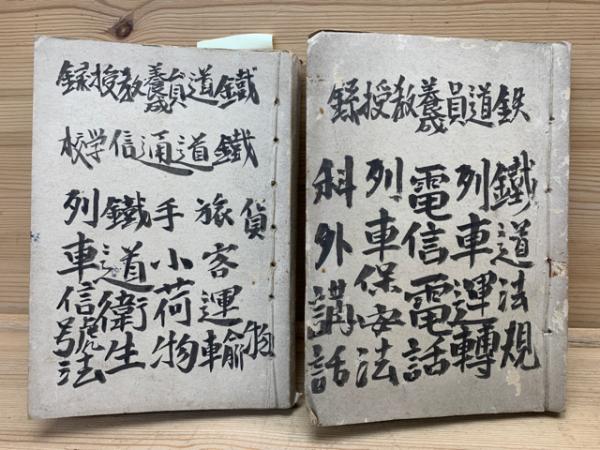 鐵道員養成教授録
鐵道通信学校
貨物
旅客運輸
手小荷物
鐵道衛生
列車信號法
鉄道員養成教授録
鐵道法規
列車運轉
電信電話
列車保安法
科外講話